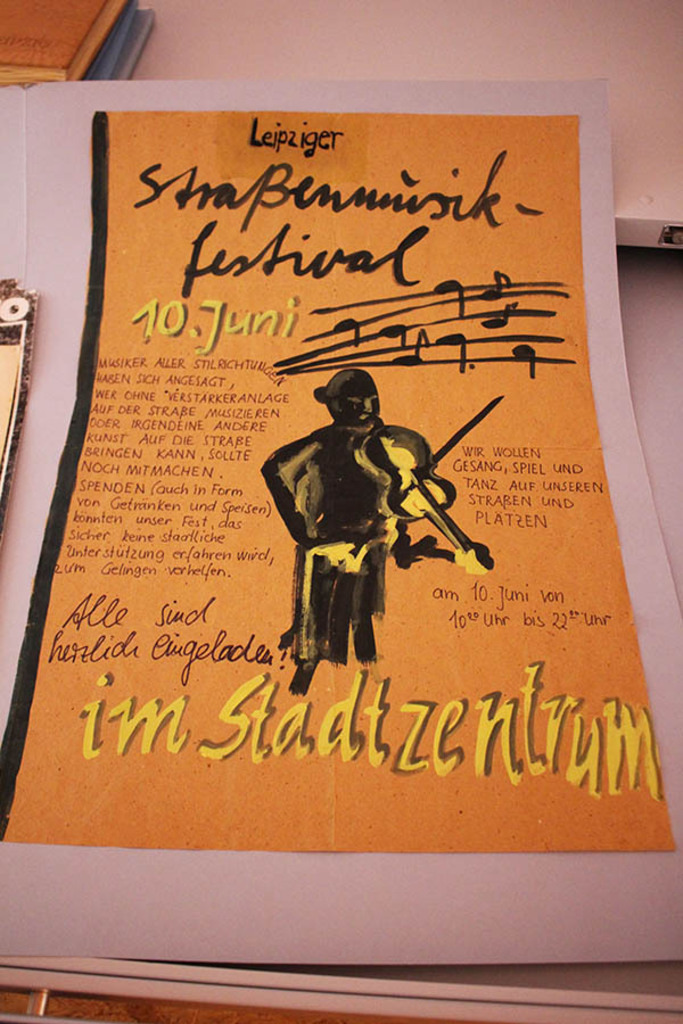 Leipziger
Straßenmusik-
festival
10. Juni
MUSIKER ALLER STILRICHTUNGEN
HABEN SICH ANGESAGT,
WER OHNE VERSTÄRKERANLAGE
AUF DER STRAßE MUSIZIEREN
ODER IRGENDEINE ANDERE
KUNST AUF DIE STRAßE
BRINGEN KANN, SOLLTE
NOCH MITMACHEN.
SPENDEN (auch in Form
von Getränken und Speisen)
könnten unser Fest, das
sicher keine staatliche
Unterstützung erfahren wird,
zum Gelingen verhelfen.
WIR WOLLEN
GESANG, SPIEL UND
TANZ AUF UNSEREN
STRAßEN UND
PLÄTZEN
am 10. Juni von
10⁰⁰ Uhr bis 22⁰⁰ Uhr
Alle sind
herzlich eingeladen!
im Stadtzentrum